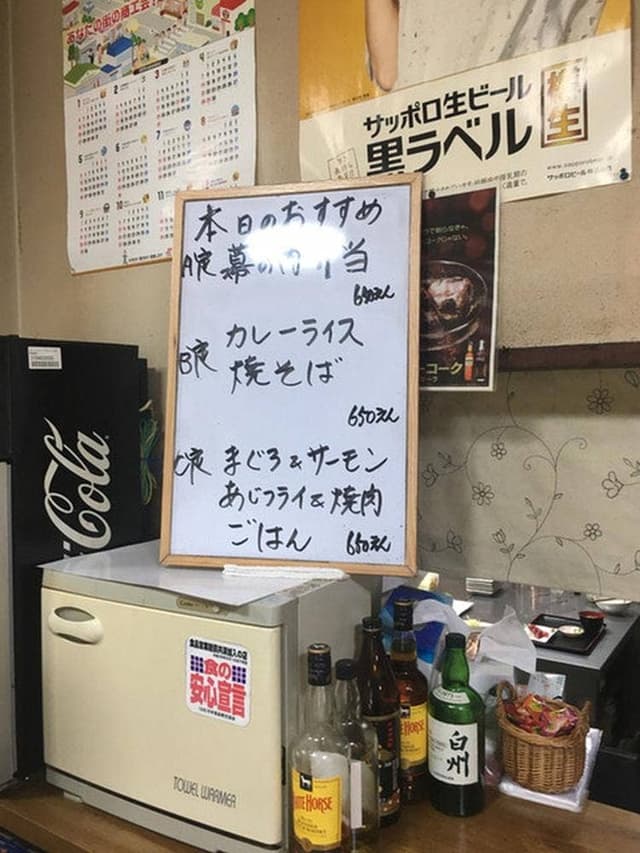 あなたの街の商工会!
サッポロ生ビール
黒ラベル
生
本日のおすすめ
A定 幕の内弁当
650えん
B定 カレーライス
焼そば
650えん
C定 まぐろ&サーモン
あじフライ&焼肉
ごはん 650えん
Cola
食の
安心宣言
TOWEL WARMER
WHITE HORSE
HORSE
白州